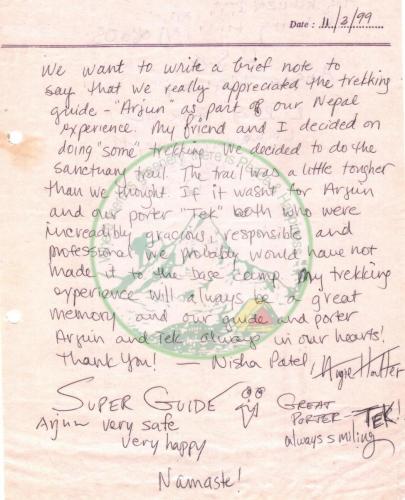 Date: 11/2/99
We want to write a brief note to
say that we really appreciated the trekking
guide - "Arjun" as part of our Nepal
experience. My friend and I decided on
doing "some" trekking. We decided to do the
sanctuary trail. The trail was a little tougher
than we thought. If it wasn't for Arjun
and our porter "Tek" both who were
increadibly gracious, responsible and
professional we probably would have not
made it to the base camp. My trekking
experience will always be a great
memory and our guide and porter
Arjun and Tek always in our hearts!
Thank You! — Nisha Patel,
SUPER GUIDE
Arjun very safe
very happy
GREAT
PORTER - TEK!
always smiling
Namaste!